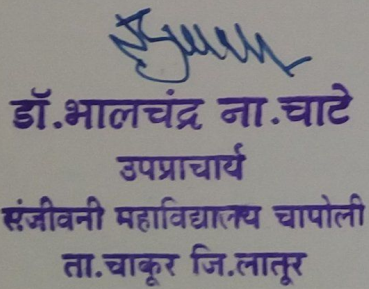 डॉ.भालचंद्र ना.चाटे
उपप्राचार्य
संजीवनी महाविद्यालय चापोली
ता.चाकूर जि.लातूर